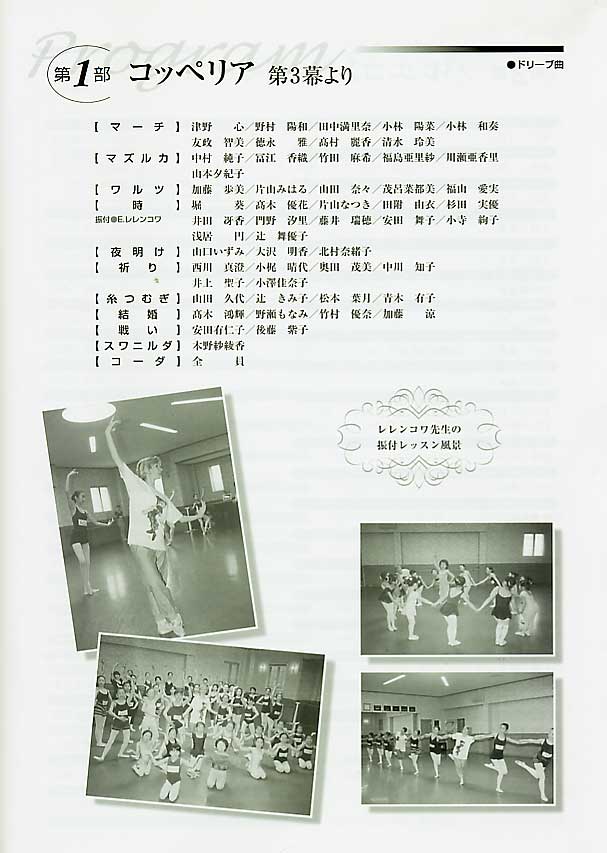 Program
第1部 コッペリア 第3幕より
●ドリーブ曲
【マーチ】 津野 心／野村 陽和／田中満里奈／小林 陽菜／小林 和奏
友政 智美／徳永 雅／髙村 麗香／清水 玲美
【マズルカ】 中村 純子／冨江 香織／竹田 麻希／福島亜里紗／川瀬亜香里
山本夕紀子
【ワルツ】 加藤 歩美／片山みはる／山田 奈々／茂呂菜都美／福山 愛実
【時】 堀 葵／髙木 優花／片山なつき／田附 由衣／杉田 実優
振付＠E.レレンコワ 井田 冴香／門野 汐里／藤井 瑞穂／安田 舞子／小寺 絢子
浅居 円／辻 舞優子
【夜明け】 山口いずみ／大沢 明香／北村奈緒子
【祈り】 西川 真澄／小梶 晴代／奥田 茂美／中川 知子
井上 聖子／小澤佳奈子
【糸つむぎ】 山田 久代／辻 きみ子／松本 葉月／青木 有子
【結婚】 髙木 鴻輝／野瀬もなみ／竹村 優奈／加藤 涼
【戦い】 安田有仁子／後藤 紫子
【スワニルダ】 木野紗綾香
【コーダ】 全員
レレンコワ先生の
振付レッスン風景